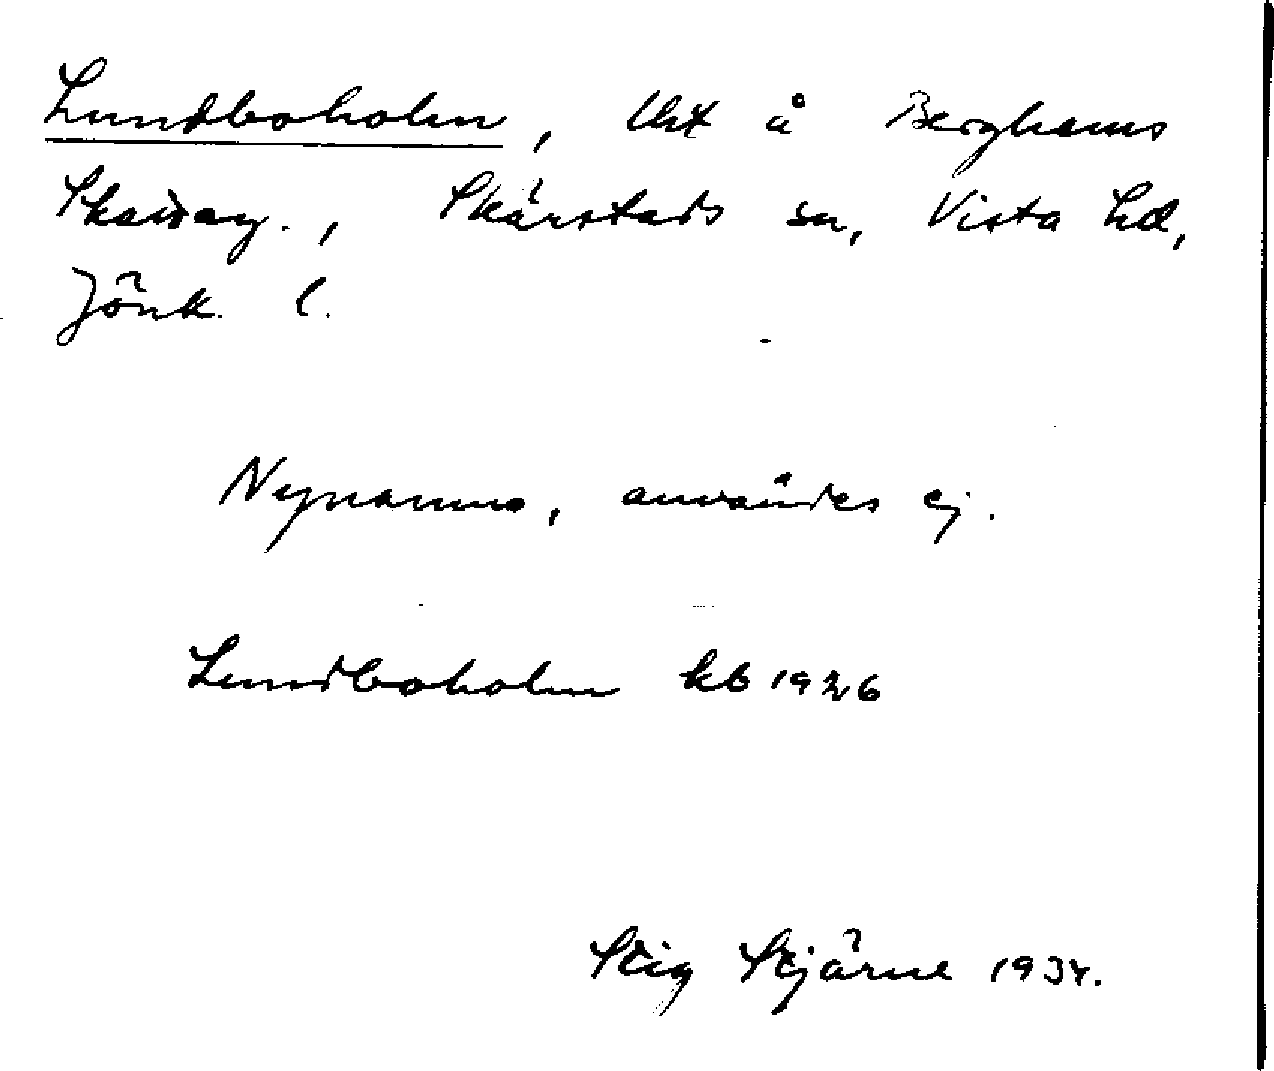 Lundboholm, lht å Berghems
Skattag., Skärstads sn, Vista hd,
Jönk. l.
Nynamn, användes ej.
Lundboholm kb 1926
Stig Stjärne 1934.